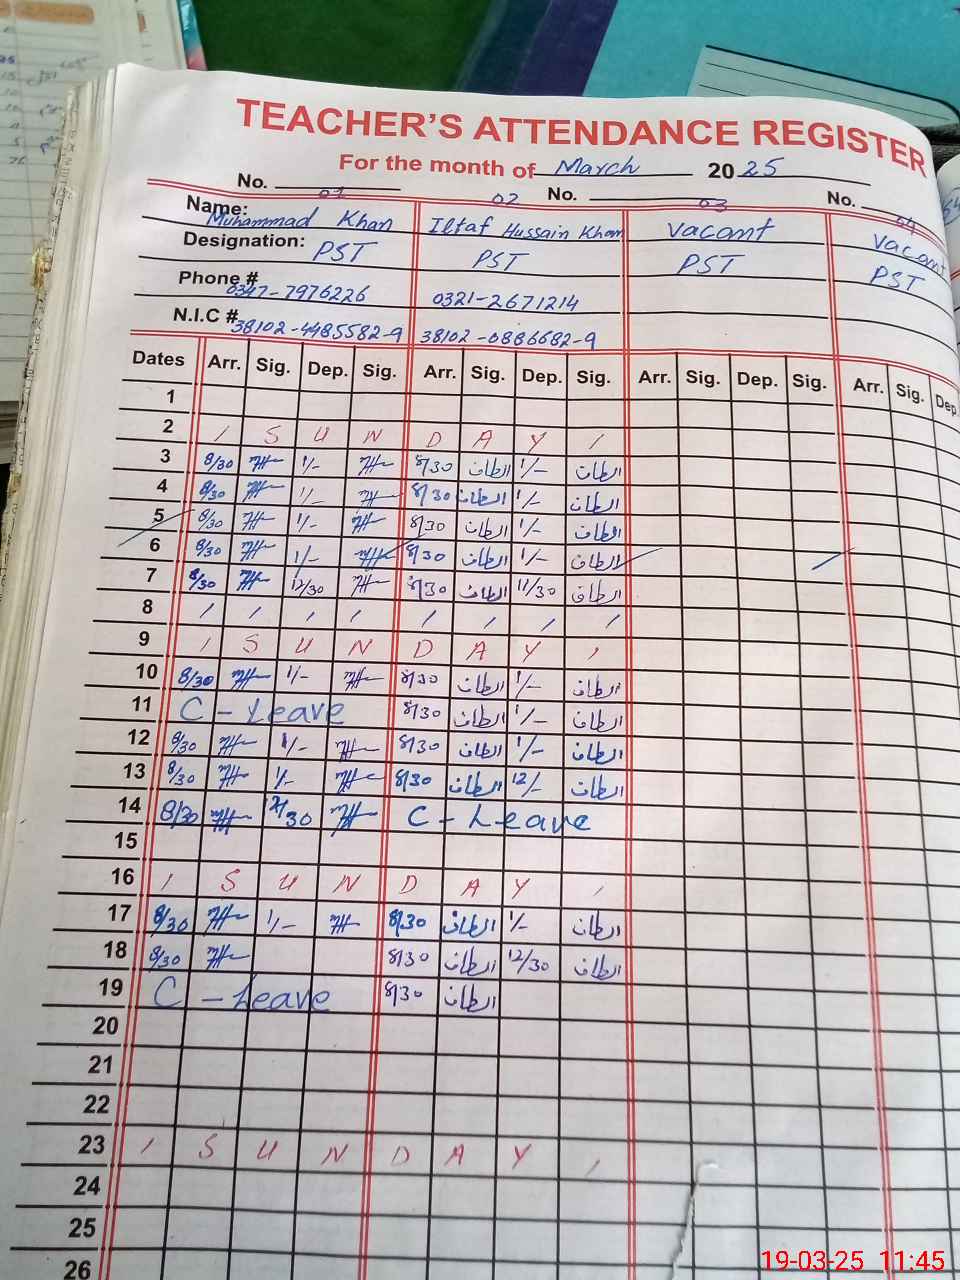 TEACHER'S ATTENDANCE REGISTER
For the month of March 2025
No. 01 No. 02 No. 03 04
Name: Muhammad Khan Iltaf Hussain Khan Vacant Vacant
Designation: PST PST PST PST
Phone # 0347-7976226 0321-2671214
N.I.C # 38102-4485582-9 38102-0886682-9
Dates Arr. Sig. Dep. Sig. Arr. Sig. Dep. Sig. Arr. Sig. Dep. Sig. Arr. Sig. Dep.
1
2 / S U N D A Y /
3 8/30 1/- 8/30 الطاف 1/- الطاف
4 8/30 1/- 8/30 الطاف 1/- الطاف
5 8/30 1/- 8/30 الطاف 1/- الطاف
6 8/30 1/- 8/30 الطاف 1/- الطاف
7 8/30 12/30 8/30 الطاف 11/30 الطاف
8 / / / / / / / /
9 / S U N D A Y /
10 8/30 1/- 8/30 الطاف 1/- الطاف
11 C - Leave 8/30 الطاف 1/- الطاف
12 8/30 1/- 8/30 الطاف 1/- الطاف
13 8/30 1/- 8/30 الطاف 12/- الطاف
14 8/30 12/30 C - Leave
15
16 / S U N D A Y /
17 8/30 1/- 8/30 الطاف 1/- الطاف
18 8/30 8/30 الطاف 12/30 الطاف
19 C - Leave 8/30 الطاف
20
21
22
23 / S U N D A Y /
24
25
26
19-03-25 11:45